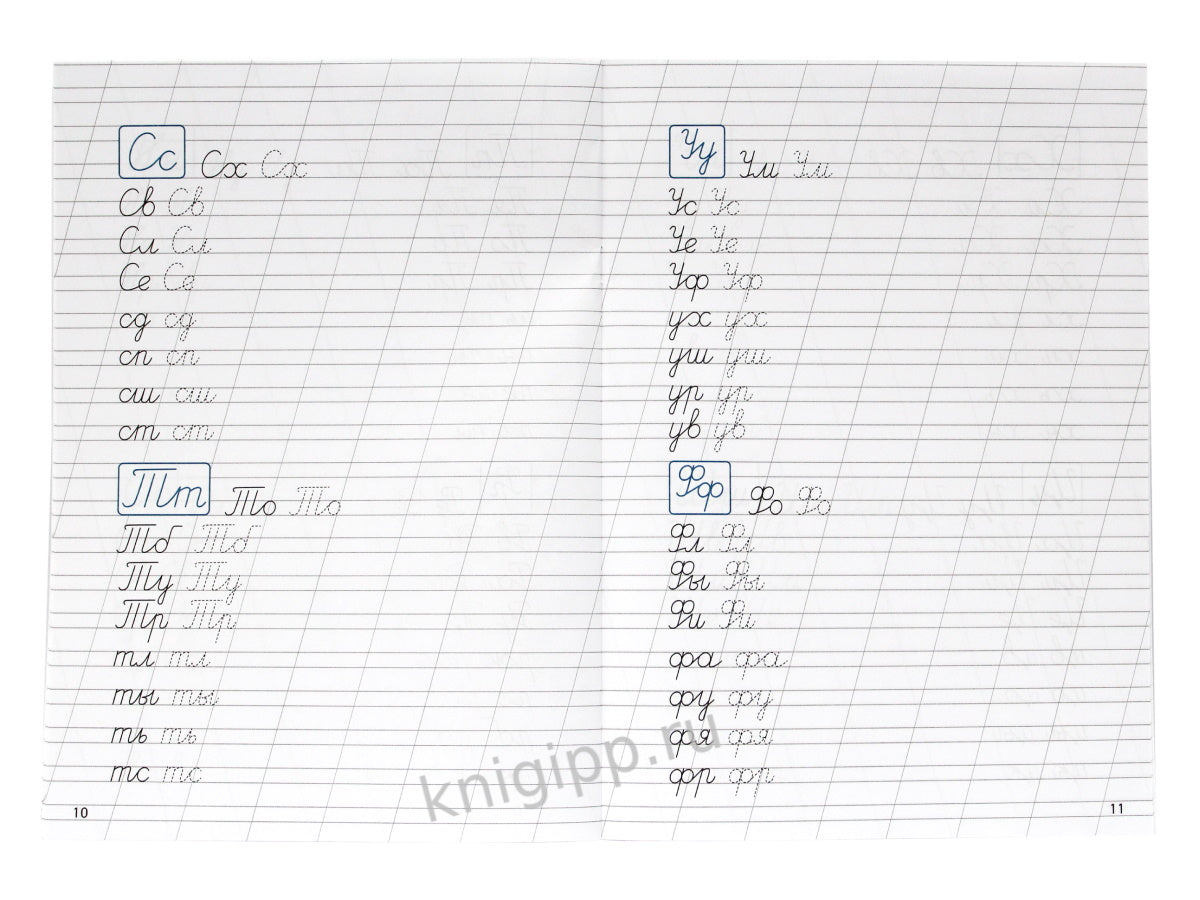 Сс Сх Сх
Св Св
Сл Сл
Се Се
сд сд
сп сп
сш сш
ст ст
Тт То То
Тб Тб
Ту Ту
Тр Тр
тл тл
ты ты
ть ть
тс тс
10
Уу Ум Ум
Ус Ус
Уе Уе
Уф Уф
ух ух
уш уш
ур ур
ув ув
Фф Фо Фо
Фл Фл
Фы Фы
Фи Фи
фа фа
фу фу
фя фя
фр фр
11
knigipp.ru